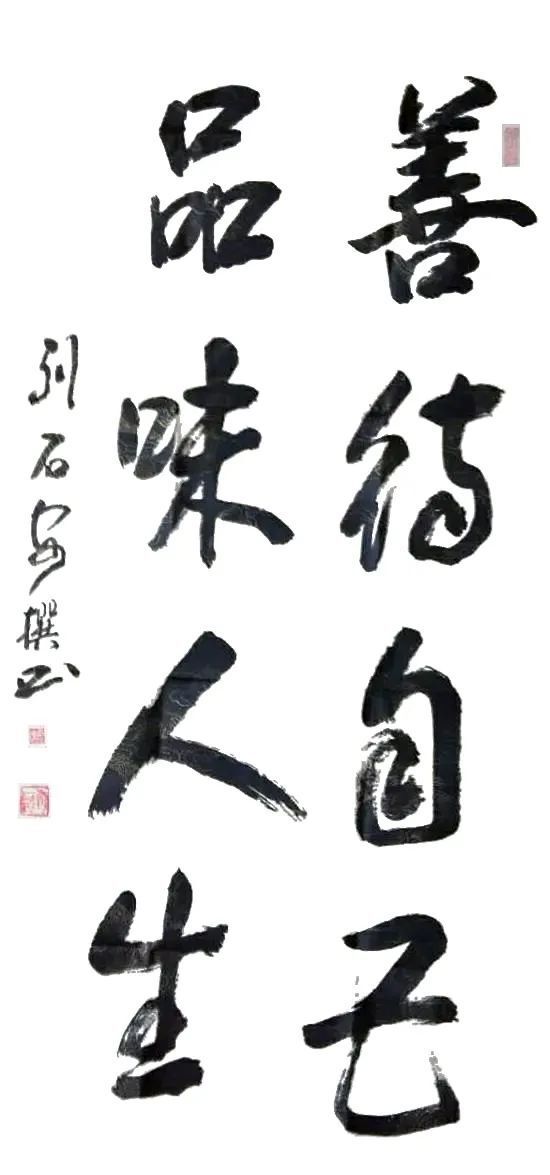 善待自己
品味人生
刘石安撰书